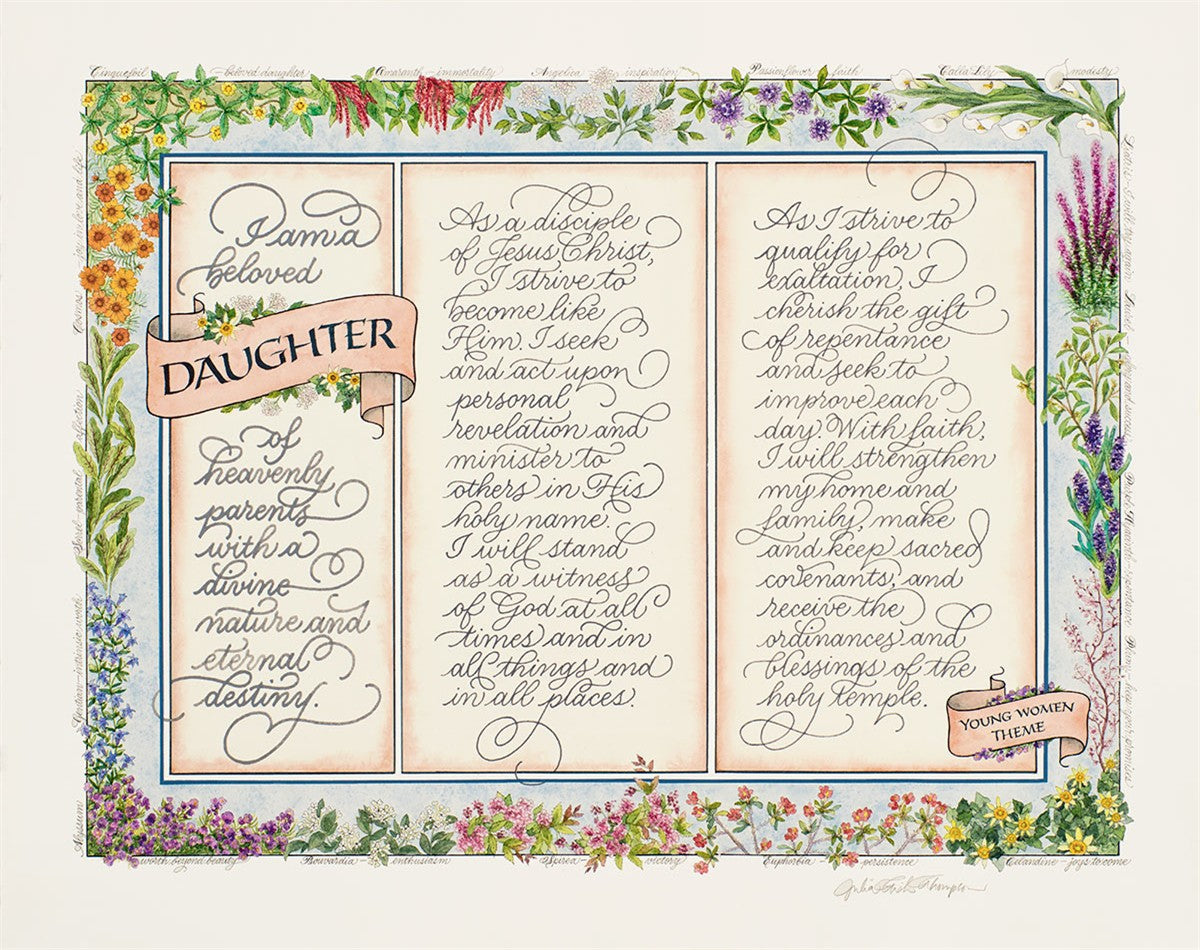 Cinquefoil — beloved daughter
Amaranth — immortality
Angelica — inspiration
Passionflower — faith
Calla Lily — modesty
I am a
beloved
DAUGHTER
of
heavenly
parents
with a
divine
nature and
eternal
destiny.
As a disciple
of Jesus Christ,
I strive to
become like
Him. I seek
and act upon
personal
revelation and
minister to
others in His
holy name.
I will stand
as a witness
of God at all
times and in
all things and
in all places.
As I strive to
qualify for
exaltation, I
cherish the gift
of repentance
and seek to
improve each
day. With faith,
I will strengthen
my home and
family, make
and keep sacred
covenants, and
receive the
ordinances and
blessings of the
holy temple.
YOUNG WOMEN
THEME
Cosmos — joy in love and life
Sorrel — parental affection
Gentian — intrinsic worth
Alyssum
worth beyond beauty
Bouvardia — enthusiasm
Spirea — victory
Euphorbia — persistence
Celandine — joys to come
Liatris — I will try again
Hyacinth — repentance
Plum — keep your promises